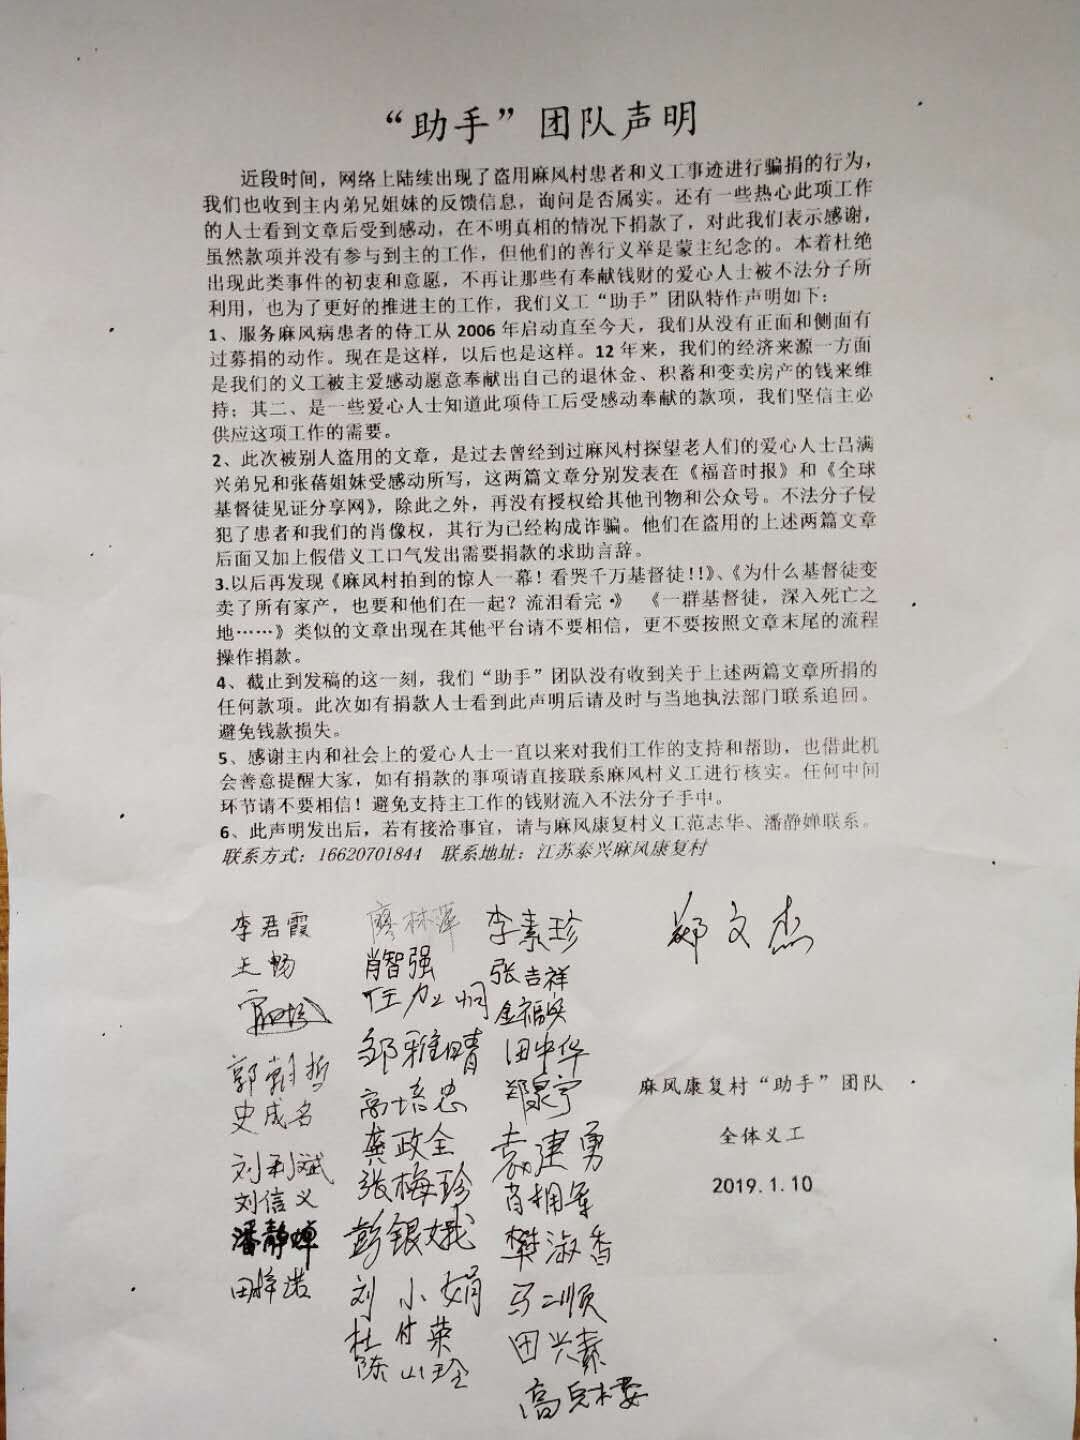 “助手”团队声明
近段时间，网络上陆续出现了盗用麻风村患者和义工事迹进行骗捐的行为，
我们也收到主内弟兄姐妹的反馈信息，询问是否属实。还有一些热心此项工作
的人士看到文章后受到感动，在不明真相的情况下捐款了，对此我们表示感谢，
虽然款项并没有参与到主的工作，但他们的善行义举是蒙主纪念的。本着杜绝
出现此类事件的初衷和意愿，不再让那些有奉献钱财的爱心人士被不法分子所
利用，也为了更好的推进主的工作，我们义工“助手”团队特作声明如下：
1、服务麻风病患者的侍工从 2006 年启动直至今天，我们从没有正面和侧面有
过募捐的动作。现在是这样，以后也是这样。12 年来，我们的经济来源一方面
是我们的义工被主爱感动愿意奉献出自己的退休金、积蓄和变卖房产的钱来维
持；其二、是一些爱心人士知道此项侍工后受感动奉献的款项，我们坚信主必
供应这项工作的需要。
2、此次被别人盗用的文章，是过去曾经到过麻风村探望老人们的爱心人士吕满
兴弟兄和张蓓姐妹受感动所写，这两篇文章分别发表在《福音时报》和《全球
基督徒见证分享网》，除此之外，再没有授权给其他刊物和公众号。不法分子侵
犯了患者和我们的肖像权，其行为已经构成诈骗。他们在盗用的上述两篇文章
后面又加上假借义工口气发出需要捐款的求助言辞。
3.以后再发现《麻风村拍到的惊人一幕！看哭千万基督徒!!》、《为什么基督徒变
卖了所有家产，也要和他们在一起？流泪看完·》 《一群基督徒，深入死亡之
地……》类似的文章出现在其他平台请不要相信，更不要按照文章末尾的流程
操作捐款。
4、截止到发稿的这一刻，我们“助手”团队没有收到关于上述两篇文章所捐的
任何款项。此次如有捐款人士看到此声明后请及时与当地执法部门联系追回。
避免钱款损失。
5、感谢主内和社会上的爱心人士一直以来对我们工作的支持和帮助，也借此机
会善意提醒大家，如有捐款的事项请直接联系麻风村义工进行核实。任何中间
环节请不要相信！避免支持主工作的钱财流入不法分子手中。
6、此声明发出后，若有接洽事宜，请与麻风康复村义工范志华、潘静婵联系。
联系方式：16620701844 联系地址：江苏泰兴麻风康复村
李君霞 廖林萍 李素珍 郑文杰
王畅 肖智强 张吉祥
邹雅晴 田中华
郭朝哲 高培忠
史成名 龚政全 袁建勇
刘利斌 张梅珍 肖拥军
刘信义 彭银娥 樊淑香
潘静婵 刘小娟 马二顺
杜付荣 田兴素
陈山玲
麻风康复村“助手”团队
全体义工
2019.1.10